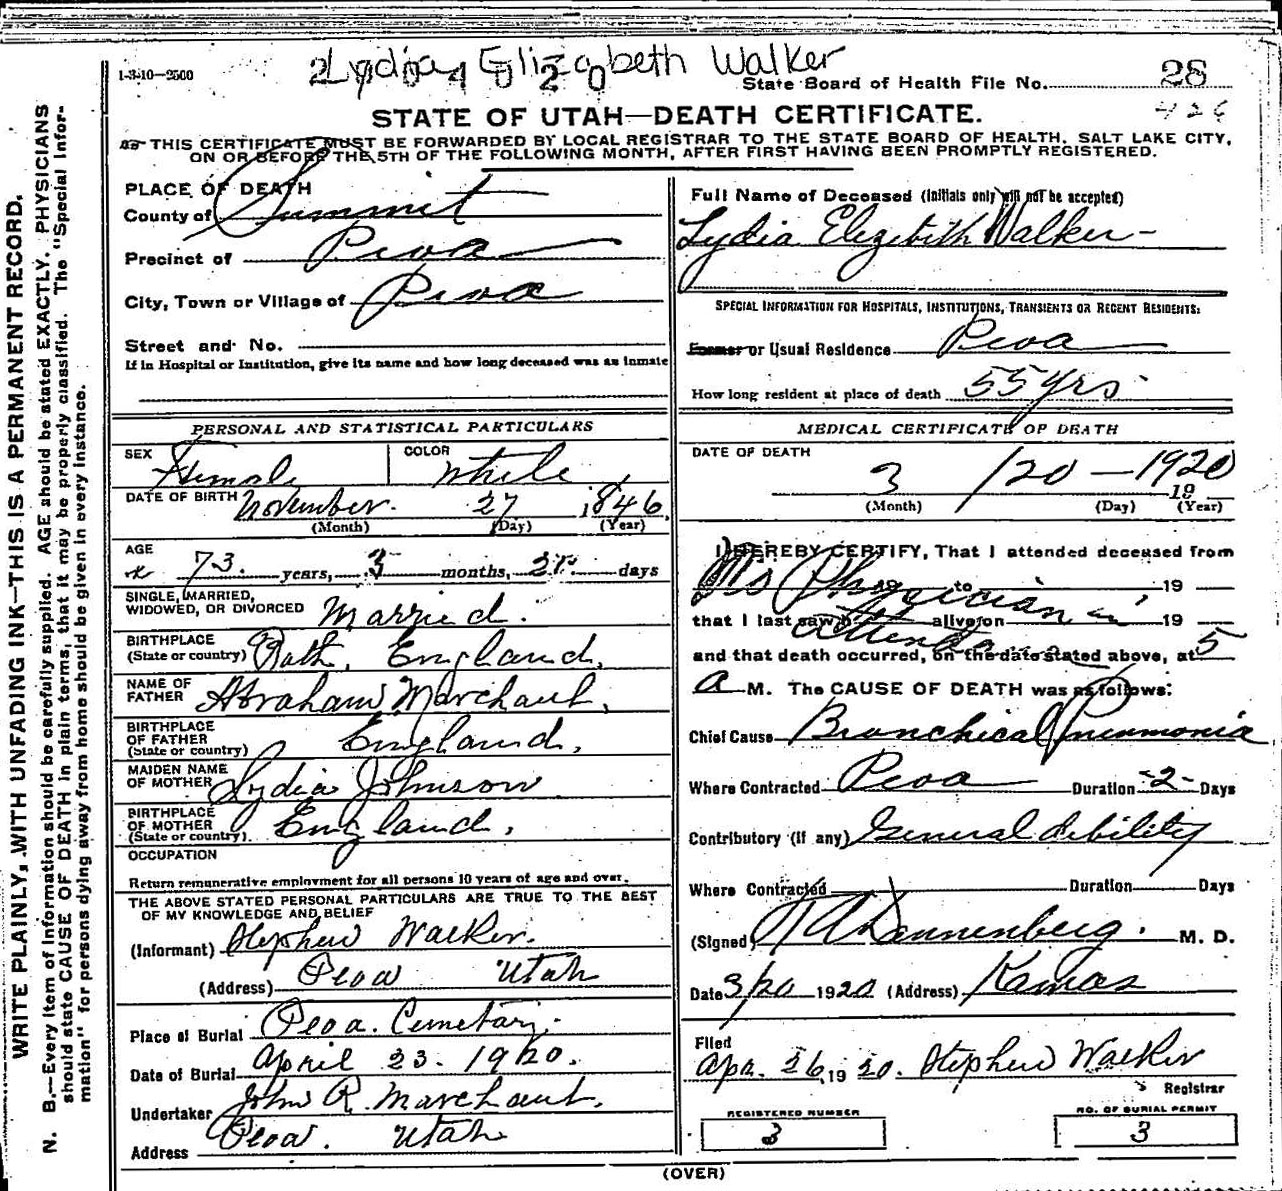 Lydia Elizabeth Walker
2 0 4 0 2 0
1-3-10—2500
State Board of Health File No. 28
426
STATE OF UTAH—DEATH CERTIFICATE.
THIS CERTIFICATE MUST BE FORWARDED BY LOCAL REGISTRAR TO THE STATE BOARD OF HEALTH, SALT LAKE CITY,
ON OR BEFORE THE 5TH OF THE FOLLOWING MONTH, AFTER FIRST HAVING BEEN PROMPTLY REGISTERED.
WRITE PLAINLY, WITH UNFADING INK—THIS IS A PERMANENT RECORD.
N. B.—Every item of information should be carefully supplied. AGE should be stated EXACTLY. PHYSICIANS
should state CAUSE OF DEATH in plain terms, that it may be properly classified. The "Special Infor-
mation" for persons dying away from home should be given in every instance.
PLACE OF DEATH
County of Summit
Precinct of Peoa
City, Town or Village of Peoa
Street and No.
If in Hospital or Institution, give its name and how long deceased was an inmate
PERSONAL AND STATISTICAL PARTICULARS
SEX Female COLOR White
DATE OF BIRTH November 27 1846
(Month) (Day) (Year)
AGE
73 years, 3 months, days
SINGLE, MARRIED,
WIDOWED, OR DIVORCED Married.
BIRTHPLACE
(State or country) Bath, England,
NAME OF
FATHER Abraham Marchant,
BIRTHPLACE
OF FATHER
(State or country) England,
MAIDEN NAME
OF MOTHER Lydia Johnson
BIRTHPLACE
OF MOTHER
(State or country) England,
OCCUPATION
Return remunerative employment for all persons 10 years of age and over.
THE ABOVE STATED PERSONAL PARTICULARS ARE TRUE TO THE BEST
OF MY KNOWLEDGE AND BELIEF
(Informant) Stephen Walker.
(Address) Peoa Utah
Place of Burial Peoa. Cemetary.
Date of Burial April 23. 1920.
Undertaker John R. Marchant.
Address Peoa. Utah
Full Name of Deceased (Initials only will not be accepted)
Lydia Elizebith Walker
SPECIAL INFORMATION FOR HOSPITALS, INSTITUTIONS, TRANSIENTS OR RECENT RESIDENTS:
Former or Usual Residence Peoa
How long resident at place of death 55 yrs
MEDICAL CERTIFICATE OF DEATH
DATE OF DEATH
3 / 20 — 1920
19
(Month) (Day) (Year)
I HEREBY CERTIFY, That I attended deceased from
No Physician in
19 to , 19
that I last saw h alive on 19
and that death occurred, on the date stated above, at 5
a M. The CAUSE OF DEATH was as follows:
Chief Cause Bronchical Pneumonia
Where Contracted Peoa Duration -2- Days
Contributory (if any) General debility
Where Contracted Duration Days
(Signed) Dannenberg. M. D.
Date 3/20 1920 (Address) Kamas
Filed
Apr. 26, 1920. Stephen Walker
Registrar
REGISTERED NUMBER
3
NO. OF BURIAL PERMIT
3
(OVER)